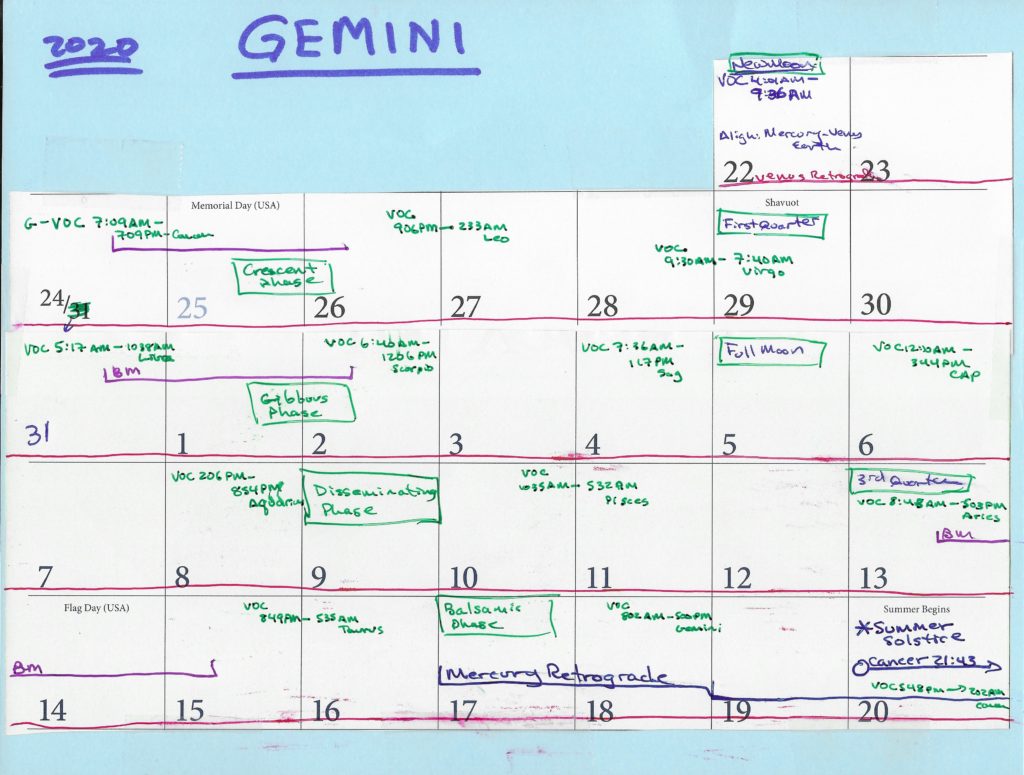 2020 GEMINI
New Moon
VOC 4:01AM–
9:36AM
Align: Mercury–Venus
Earth
22 Venus Retrograde
23
G–VOC 7:09AM–
709PM–Cancer
24/31
Memorial Day (USA)
25
Crescent
Phase
26
VOC
906PM – 233AM
Leo
27
VOC
9:30AM – 7:40AM
Virgo
28
Shavuot
First Quarter
29
30
VOC 5:17AM – 1038AM
Libra
BM
31
1
Gibbous
Phase
VOC 6:40AM –
1206PM
Scorpio
2
3
VOC 7:36AM –
117PM
Sag
4
Full Moon
5
VOC 12:10AM –
344PM
CAP
6
7
VOC 206PM–
854PM
Aquarius
8
Disseminating
Phase
9
VOC
1035AM – 532AM
Pisces
10
11
12
3rd Quarter
VOC 8:45AM – 503PM
Aries
BM
13
Flag Day (USA)
BM
14
VOC
849AM – 535AM
Taurus
15
16
Balsamic
Phase
Mercury Retrograde
17
VOC
802AM – 500PM
Gemini
18
19
Summer Begins
*Summer
Solstice
Cancer 21:43
VOC 548PM → 202AM
Cancer
20